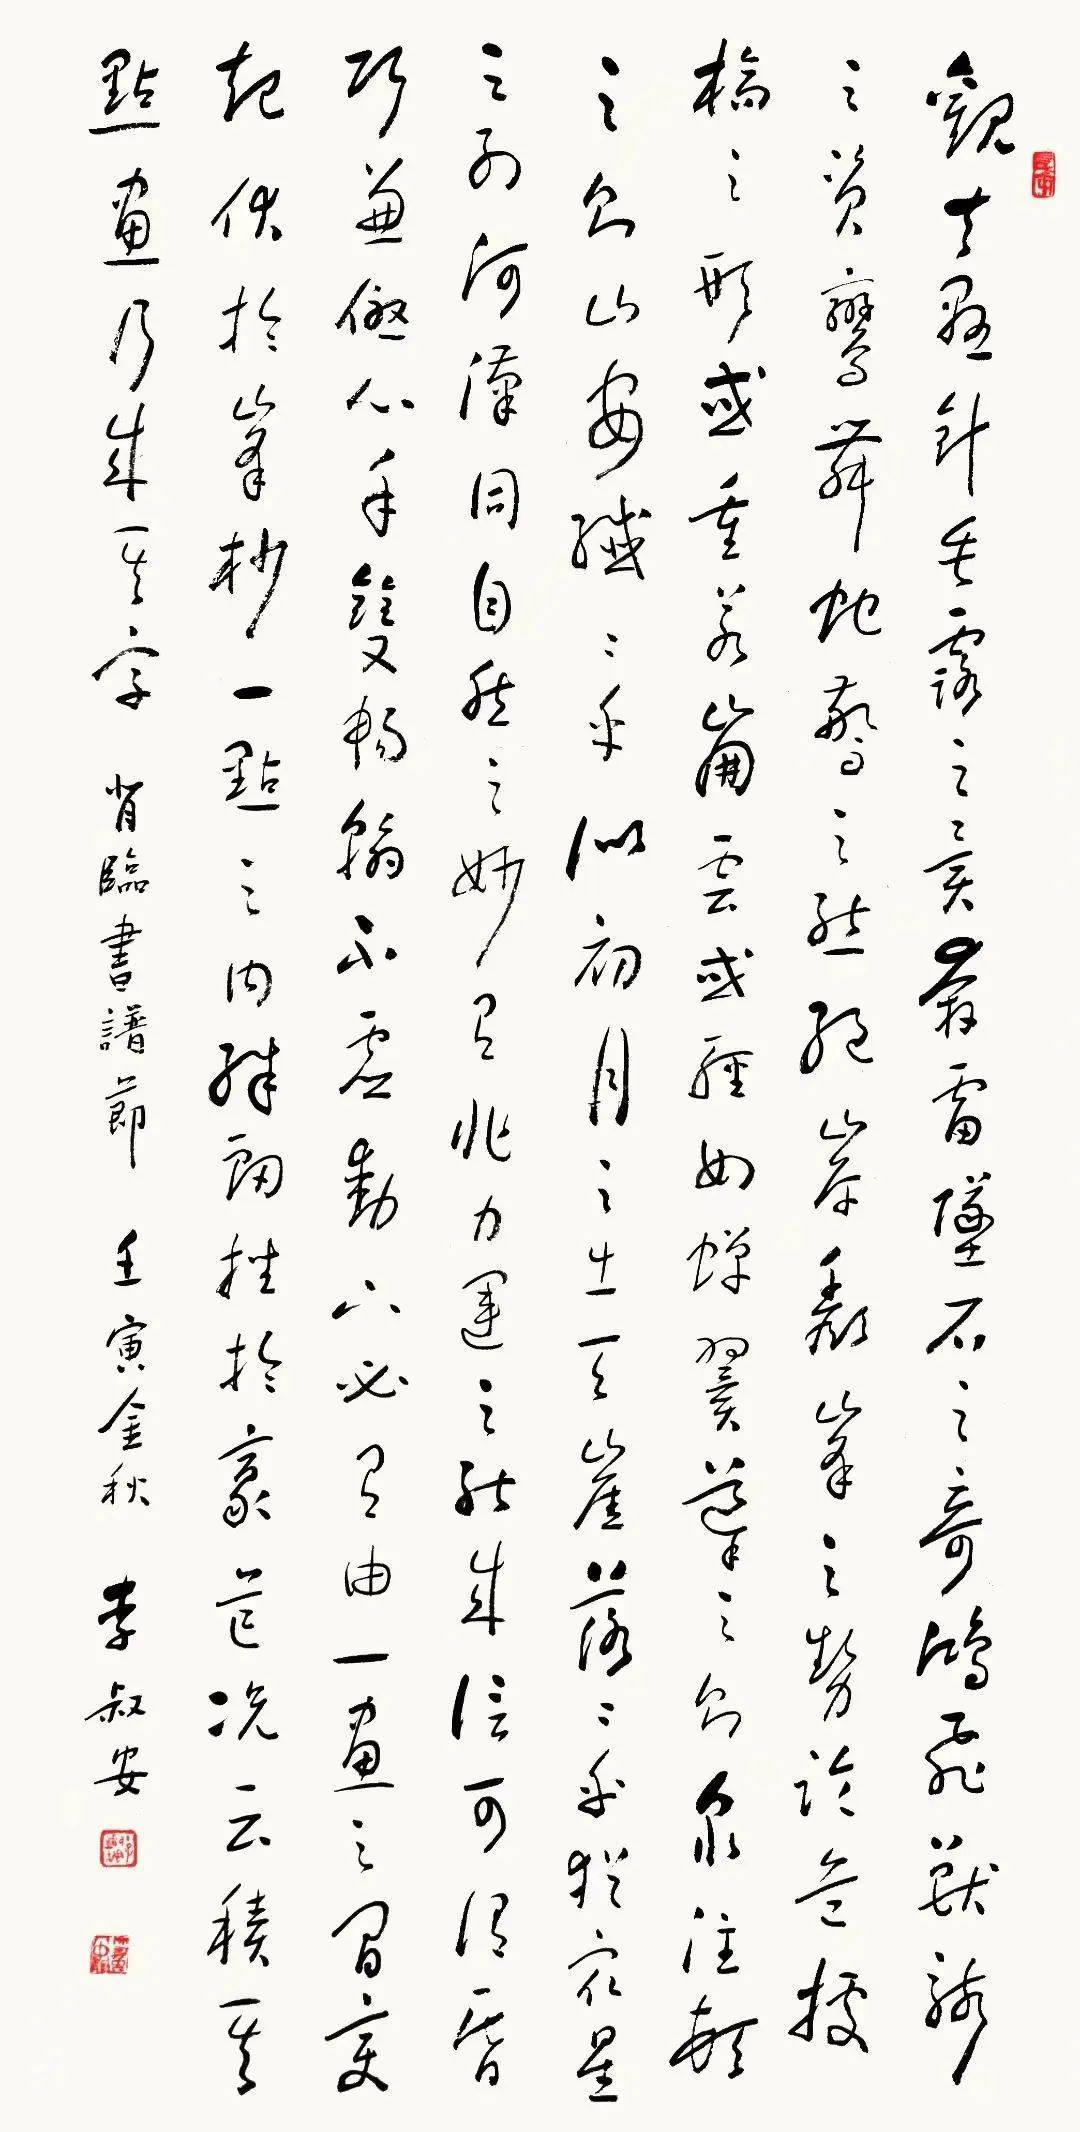 觀夫懸針垂露之異奔雷墜石之奇鴻飛獸駭
之資鸞舞蛇驚之態絕岸頹峯之勢臨危據
槁之形或重若崩雲或輕如蟬翼導之則泉注頓
之則山安纖〻乎似初月之出天崖落〻乎猶眾星
之列河漢同自然之妙有非力運之能成信可謂智
巧兼優心手雙暢翰不虛動下必有由一畫之間變
起伏於峯杪一點之內殊衄挫於豪芒況云積其
點畫乃成其字 背臨書譜節 壬寅金秋 李叔安